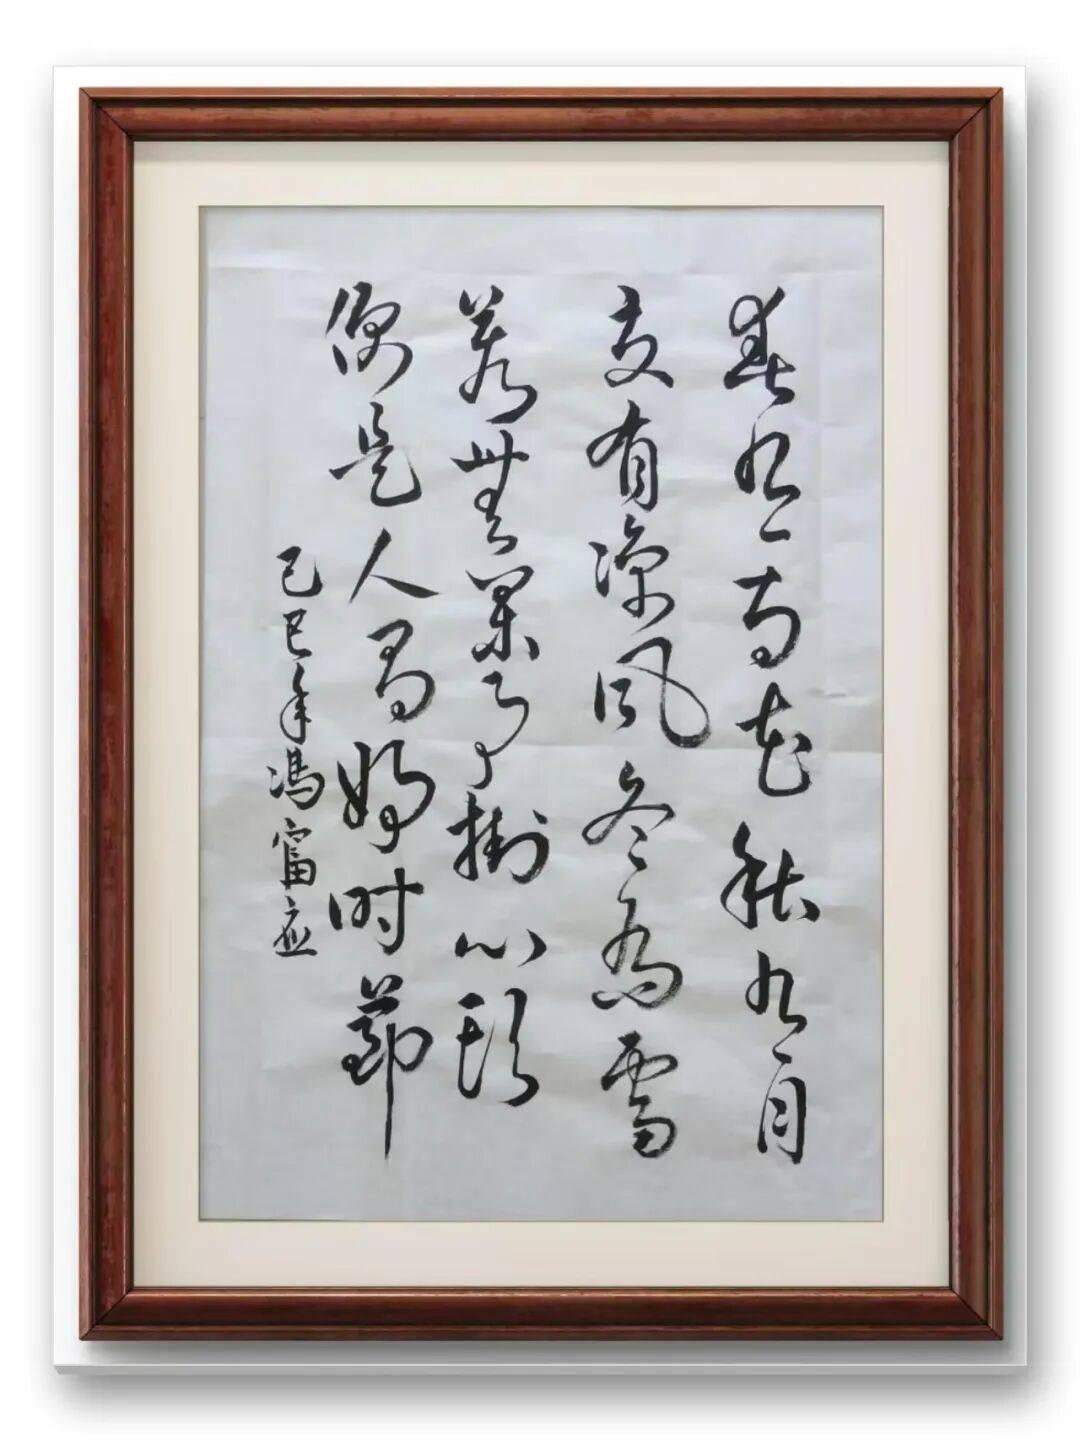 春有百花秋有月
夏有凉风冬有雪
若無闲事掛心頭
便是人间好时節
己巳年馮富应